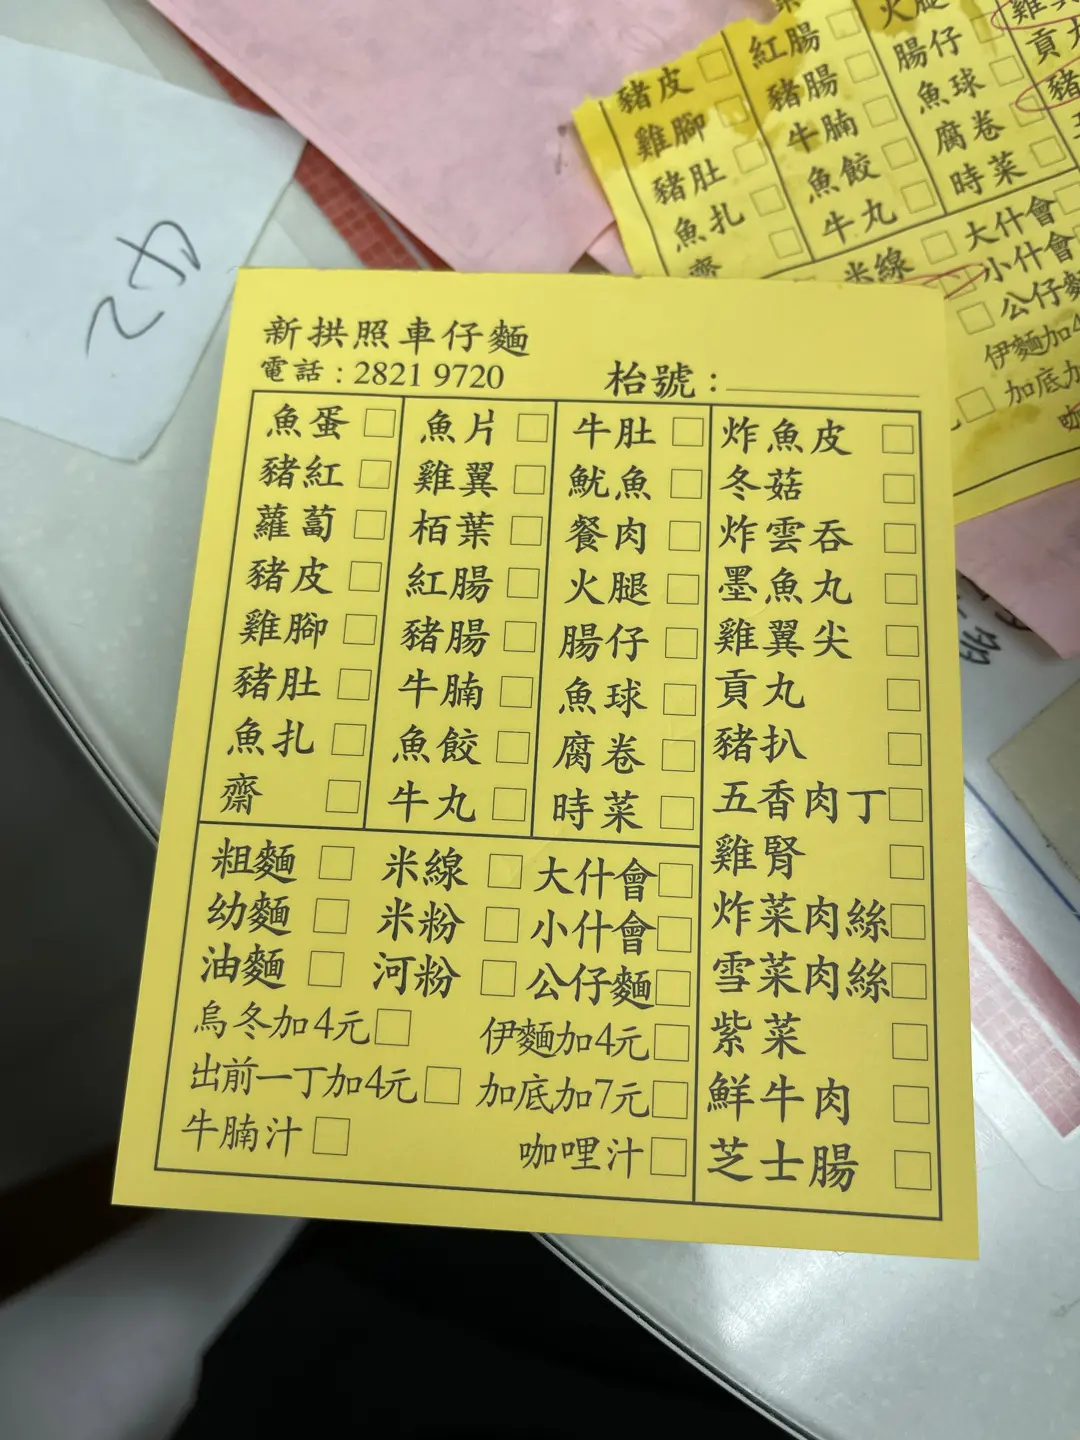 新拱照車仔麵
電話：2821 9720
枱號：
魚蛋
豬紅
蘿蔔
豬皮
雞腳
豬肚
魚扎
齋
魚片
雞翼
栢葉
紅腸
豬腸
牛腩
魚餃
牛丸
牛肚
魷魚
餐肉
火腿
腸仔
魚球
腐卷
時菜
炸魚皮
冬菇
炸雲吞
墨魚丸
雞翼尖
貢丸
豬扒
五香肉丁
雞腎
炸菜肉絲
雪菜肉絲
紫菜
鮮牛肉
芝士腸
粗麵 米線 大什會
幼麵 米粉 小什會
油麵 河粉 公仔麵
烏冬加4元 伊麵加4元
出前一丁加4元 加底加7元
牛腩汁 咖哩汁
豬皮
雞腳
豬肚
魚扎
齋
紅腸
豬腸
牛腩
魚餃
牛丸
火腿
腸仔
魚球
腐卷
時菜
貢
豬
米線 大什會
小什會
公仔麵
伊麵加4
加底加